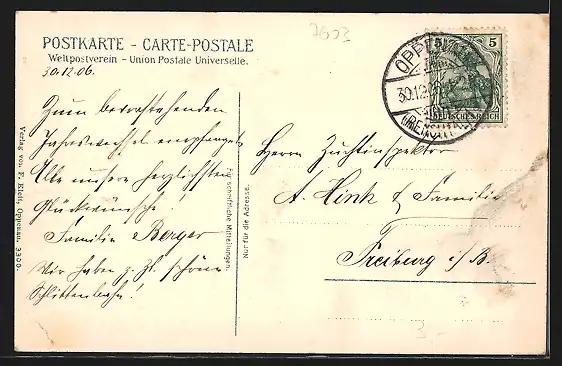 7603
POSTKARTE - CARTE-POSTALE
Weltpostverein - Union Postale Universelle.
30.12.06.
Zum bevorstehenden
Jahreswechsel empfanget
Alle unsere herzlichsten
Glückwünsche!
Familie Berger
Wir haben z. Zt. schöne
Schlittenbahn!
Verlag von F. Kiefl, Oppenau. 3300.
Für schriftliche Mitteilungen.
Nur für die Adresse.
OPPENAU
30.12
(RENCHTAL)
5 5
DEUTSCHES REICH
Herrn Zuchtinspektor
A. Hink & Familie
Freiburg i/B.
3-